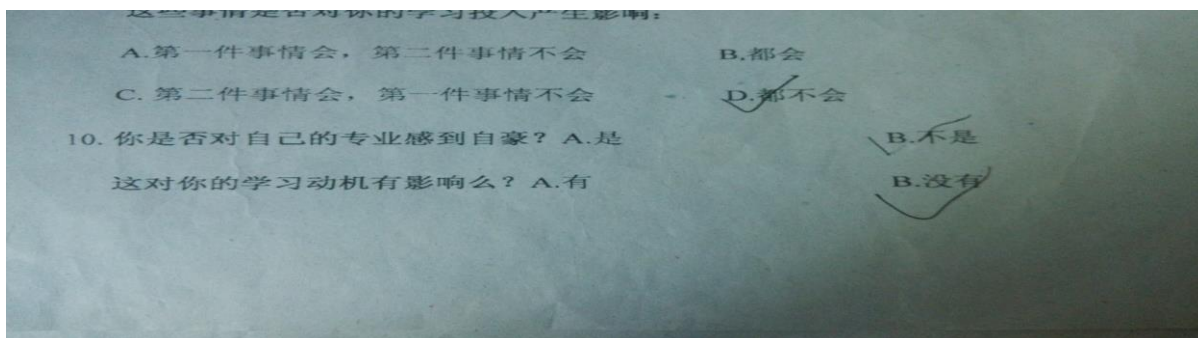 这些事情是否对你的学习投入产生影响：
A.第一件事情会，第二件事情不会 B.都会
C. 第二件事情会，第一件事情不会 D.都不会
10. 你是否对自己的专业感到自豪？A.是 B.不是
这对你的学习动机有影响么？A.有 B.没有